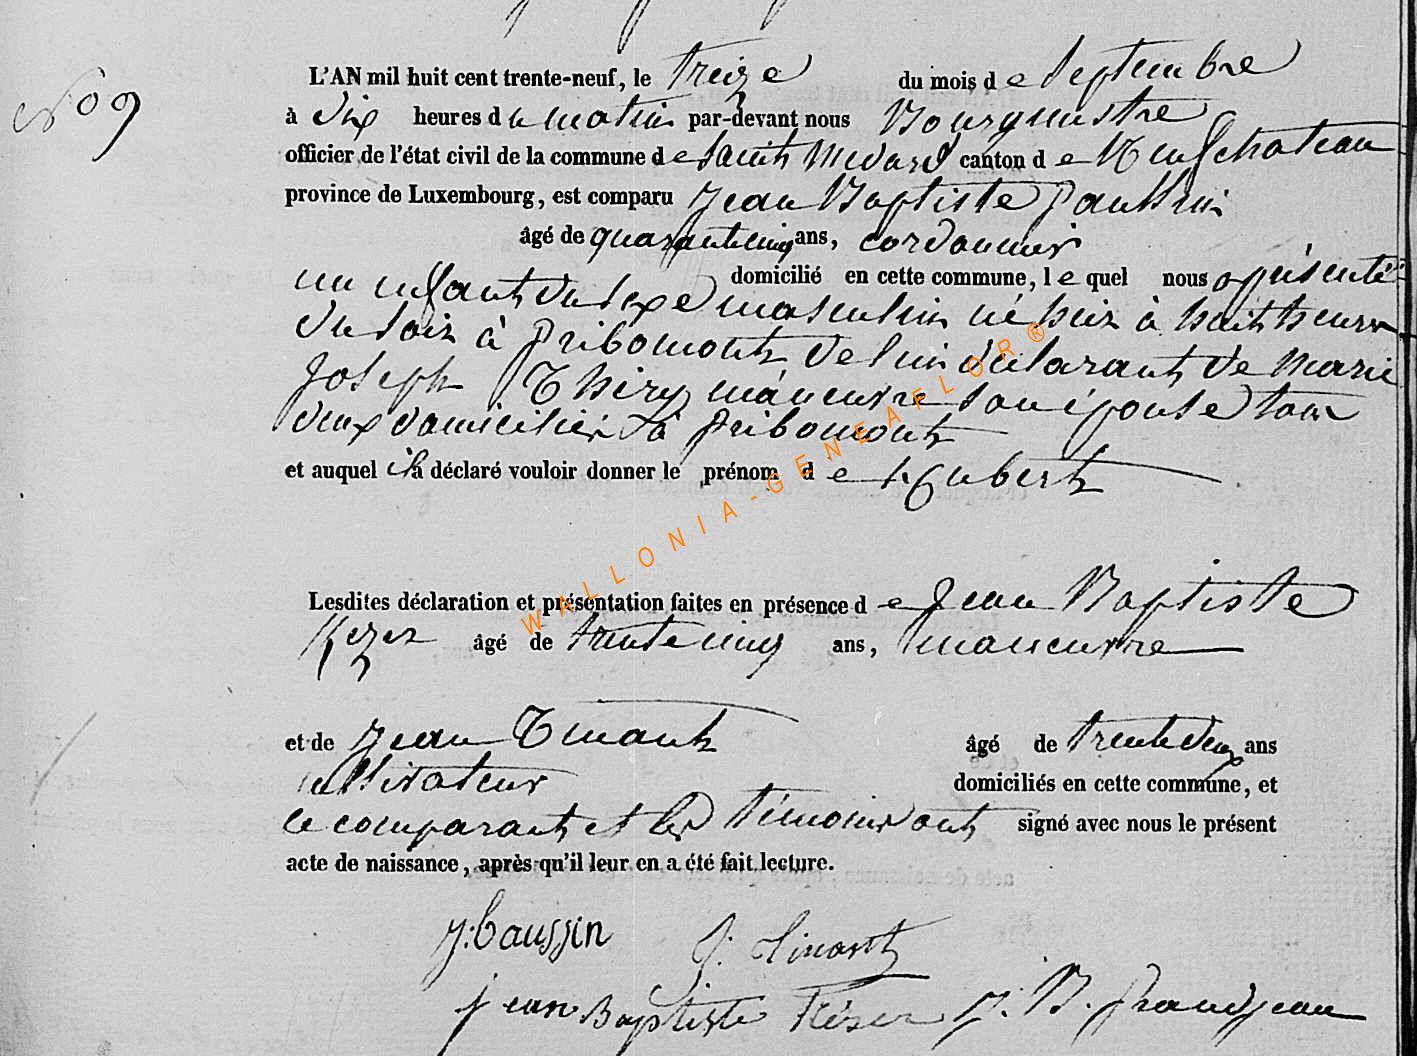 N° 9
L'AN mil huit cent trente-neuf, le treize du mois de Septembre
à dix heures du matin par-devant nous Bourgmestre
officier de l'état civil de la commune de Saint Medard canton de Neufchateau
province de Luxembourg, est comparu Jean Baptiste Paussin
âgé de quarante cinq ans, cordonnier
domicilié en cette commune, lequel nous a présenté
un enfant du sexe masculin né hier à huit heures
du soir à Pribomont de lui déclarant de Marie
Joseph Thiry maneuvre son épouse tous
deux domiciliés à Pribomont
et auquel il a déclaré vouloir donner le prénom de Hubert
Lesdites déclaration et présentation faites en présence de Jean Baptiste
Kezer âgé de trente cinq ans, maneuvre
et de Jean Tinant âgé de trente deux ans
cultivateur domiciliés en cette commune, et
le comparant et les témoins ont signé avec nous le présent
acte de naissance, après qu'il leur en a été fait lecture.
J: baussin J. Tinant
jean Baptiste Késer J. B. Grandjean
WALLONIA-GENEAFLOR®